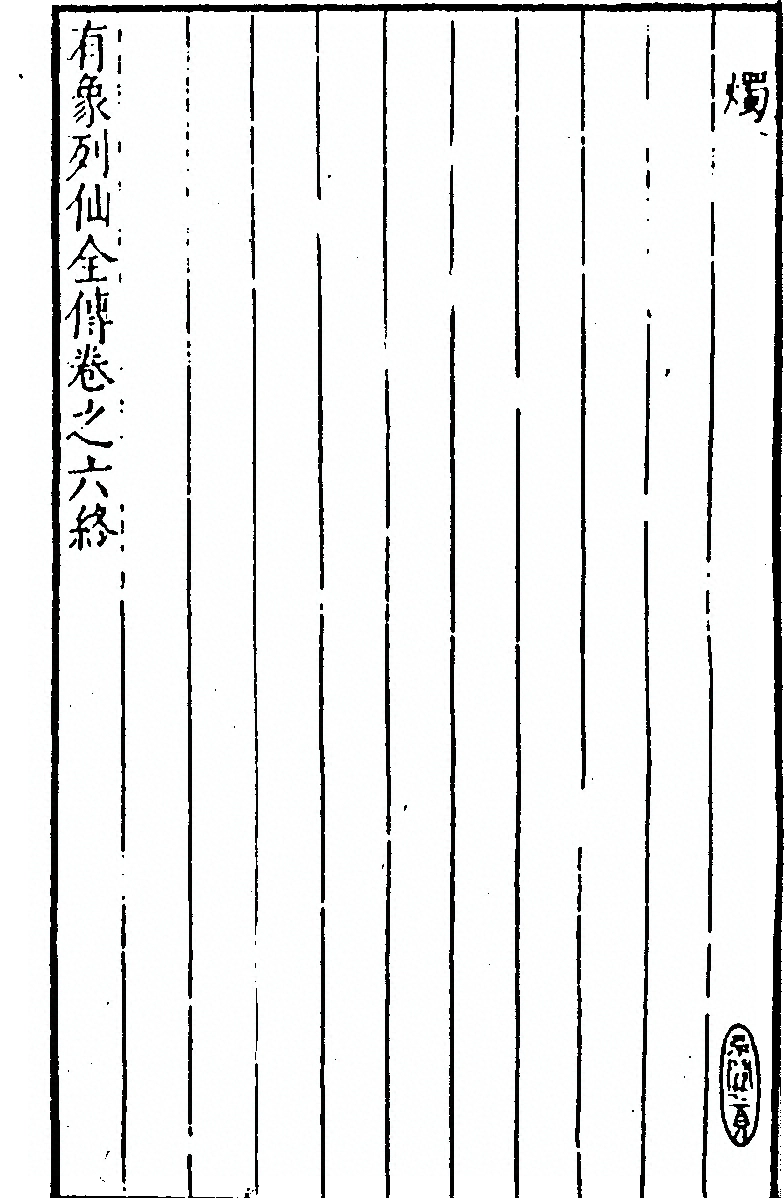 燭
有象列仙全傳卷之六終